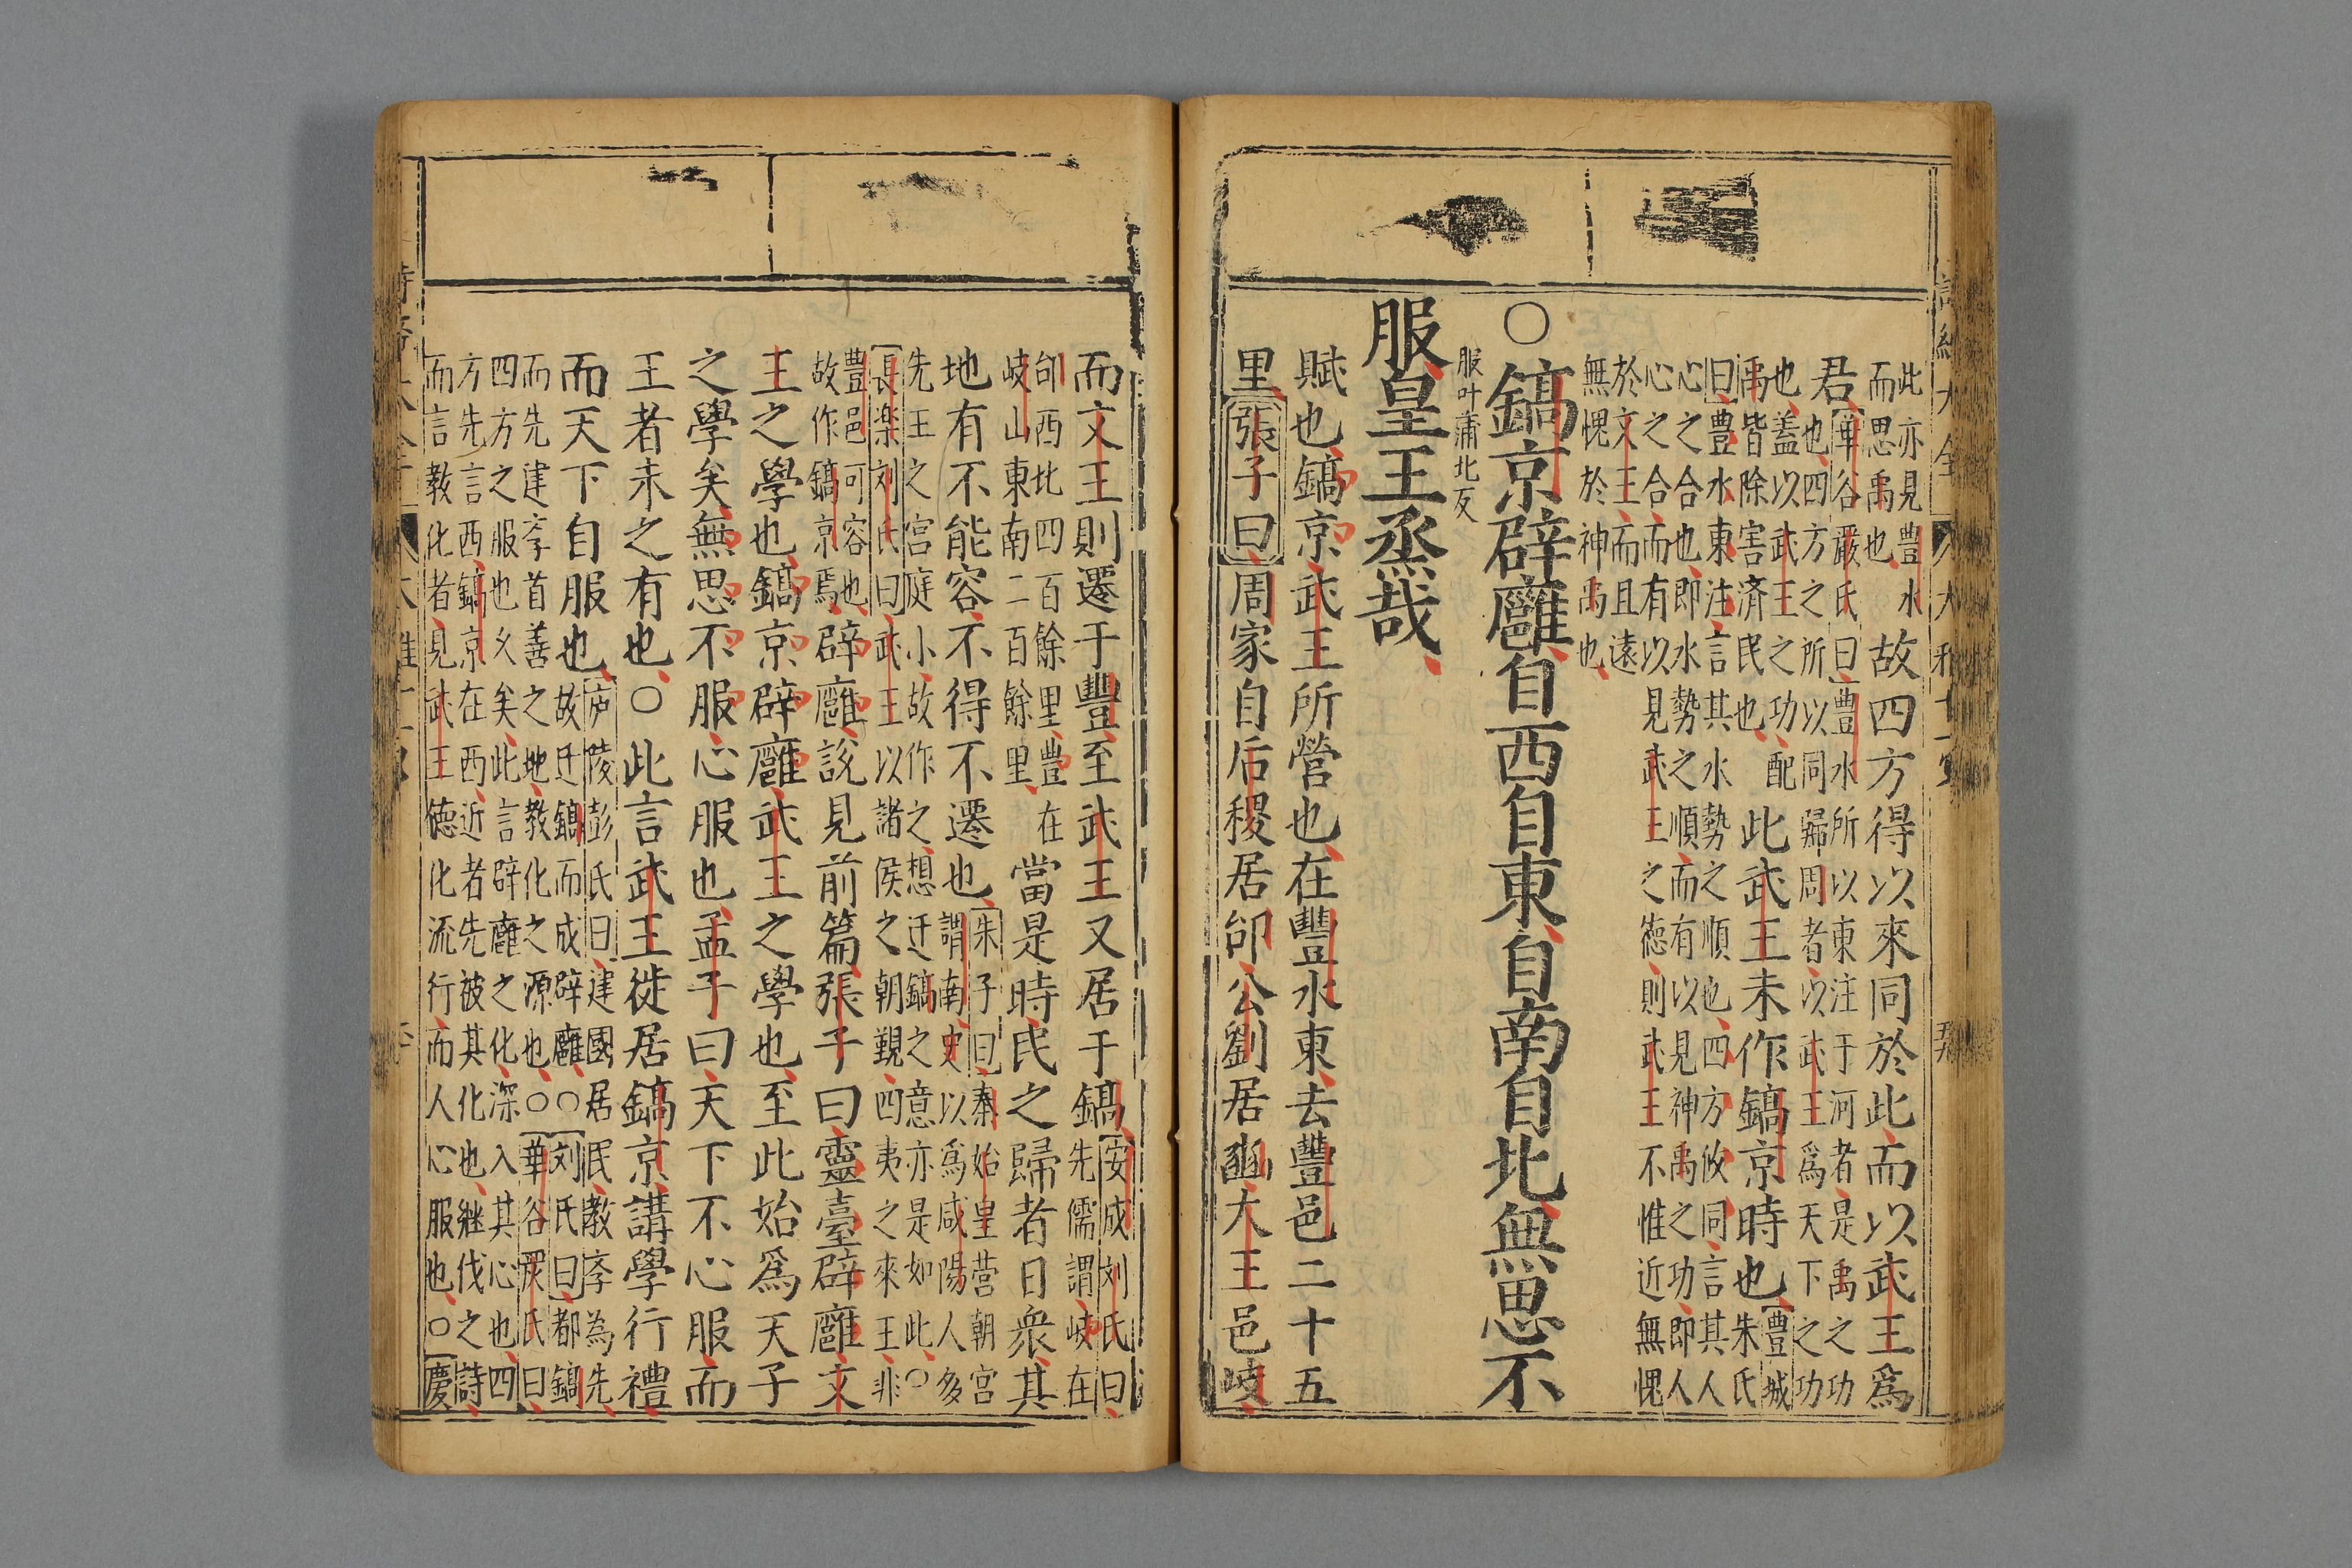 此亦見豊水
而思禹也
故四方得以來同於此而以武王爲
君
華谷嚴氏曰豊水所以東注于河者是禹之功
也四方之所以同歸周者以武王爲天下之功
也盖以武王之功配
禹皆除害済民也
此武王未作鎬京時也
豊城
朱氏
曰豊水東注言其水勢之順也四方攸同言其人
心之合也即水勢之順而有以見神禹之功即人
心之合而有以見武王之德則武王不惟近無愧
於文王而且遠
無愧於神禹也
○鎬京辟廱自西自東自南自北無思不
服叶蒲北反
服皇王烝哉
賦也鎬京武王所營也在豐水東去豐邑二十五
里張子曰周家自后稷居邰公劉居豳大王邑岐
而文王則遷于豐至武王又居于鎬
安成刘氏曰
先儒謂岐在
邰西北四百餘里豊在
岐山東南二百餘里
當是時民之歸者日衆其
地有不能容不得不遷也
朱子曰秦始皇营朝宮
謂南史以爲咸陽人多
先王之宮庭小故作之想迁鎬之意亦是如此○
長楽刘氏曰武王以諸侯之朝覲四夷之來王非
豊邑可容也
故作鎬京焉
辟廱說見前篇張子曰靈臺辟廱文
王之學也鎬京辟廱武王之學也至此始爲天子
之學矣無思不服心服也孟子曰天下不心服而
王者未之有也○此言武王徙居鎬京講學行禮
而天下自服也
庐陵彭氏曰建國居民教孝為先
故迁鎬而成辟廱○刘氏曰都鎬
而先建斈首善之地教化之源也○華谷嚴氏曰
四方之服也乆矣此言辟廱之化深入其心也四
方先言西鎬京在西近者先被其化也継伐之詩
而言教化者見武王徳化流行而人心服也○慶